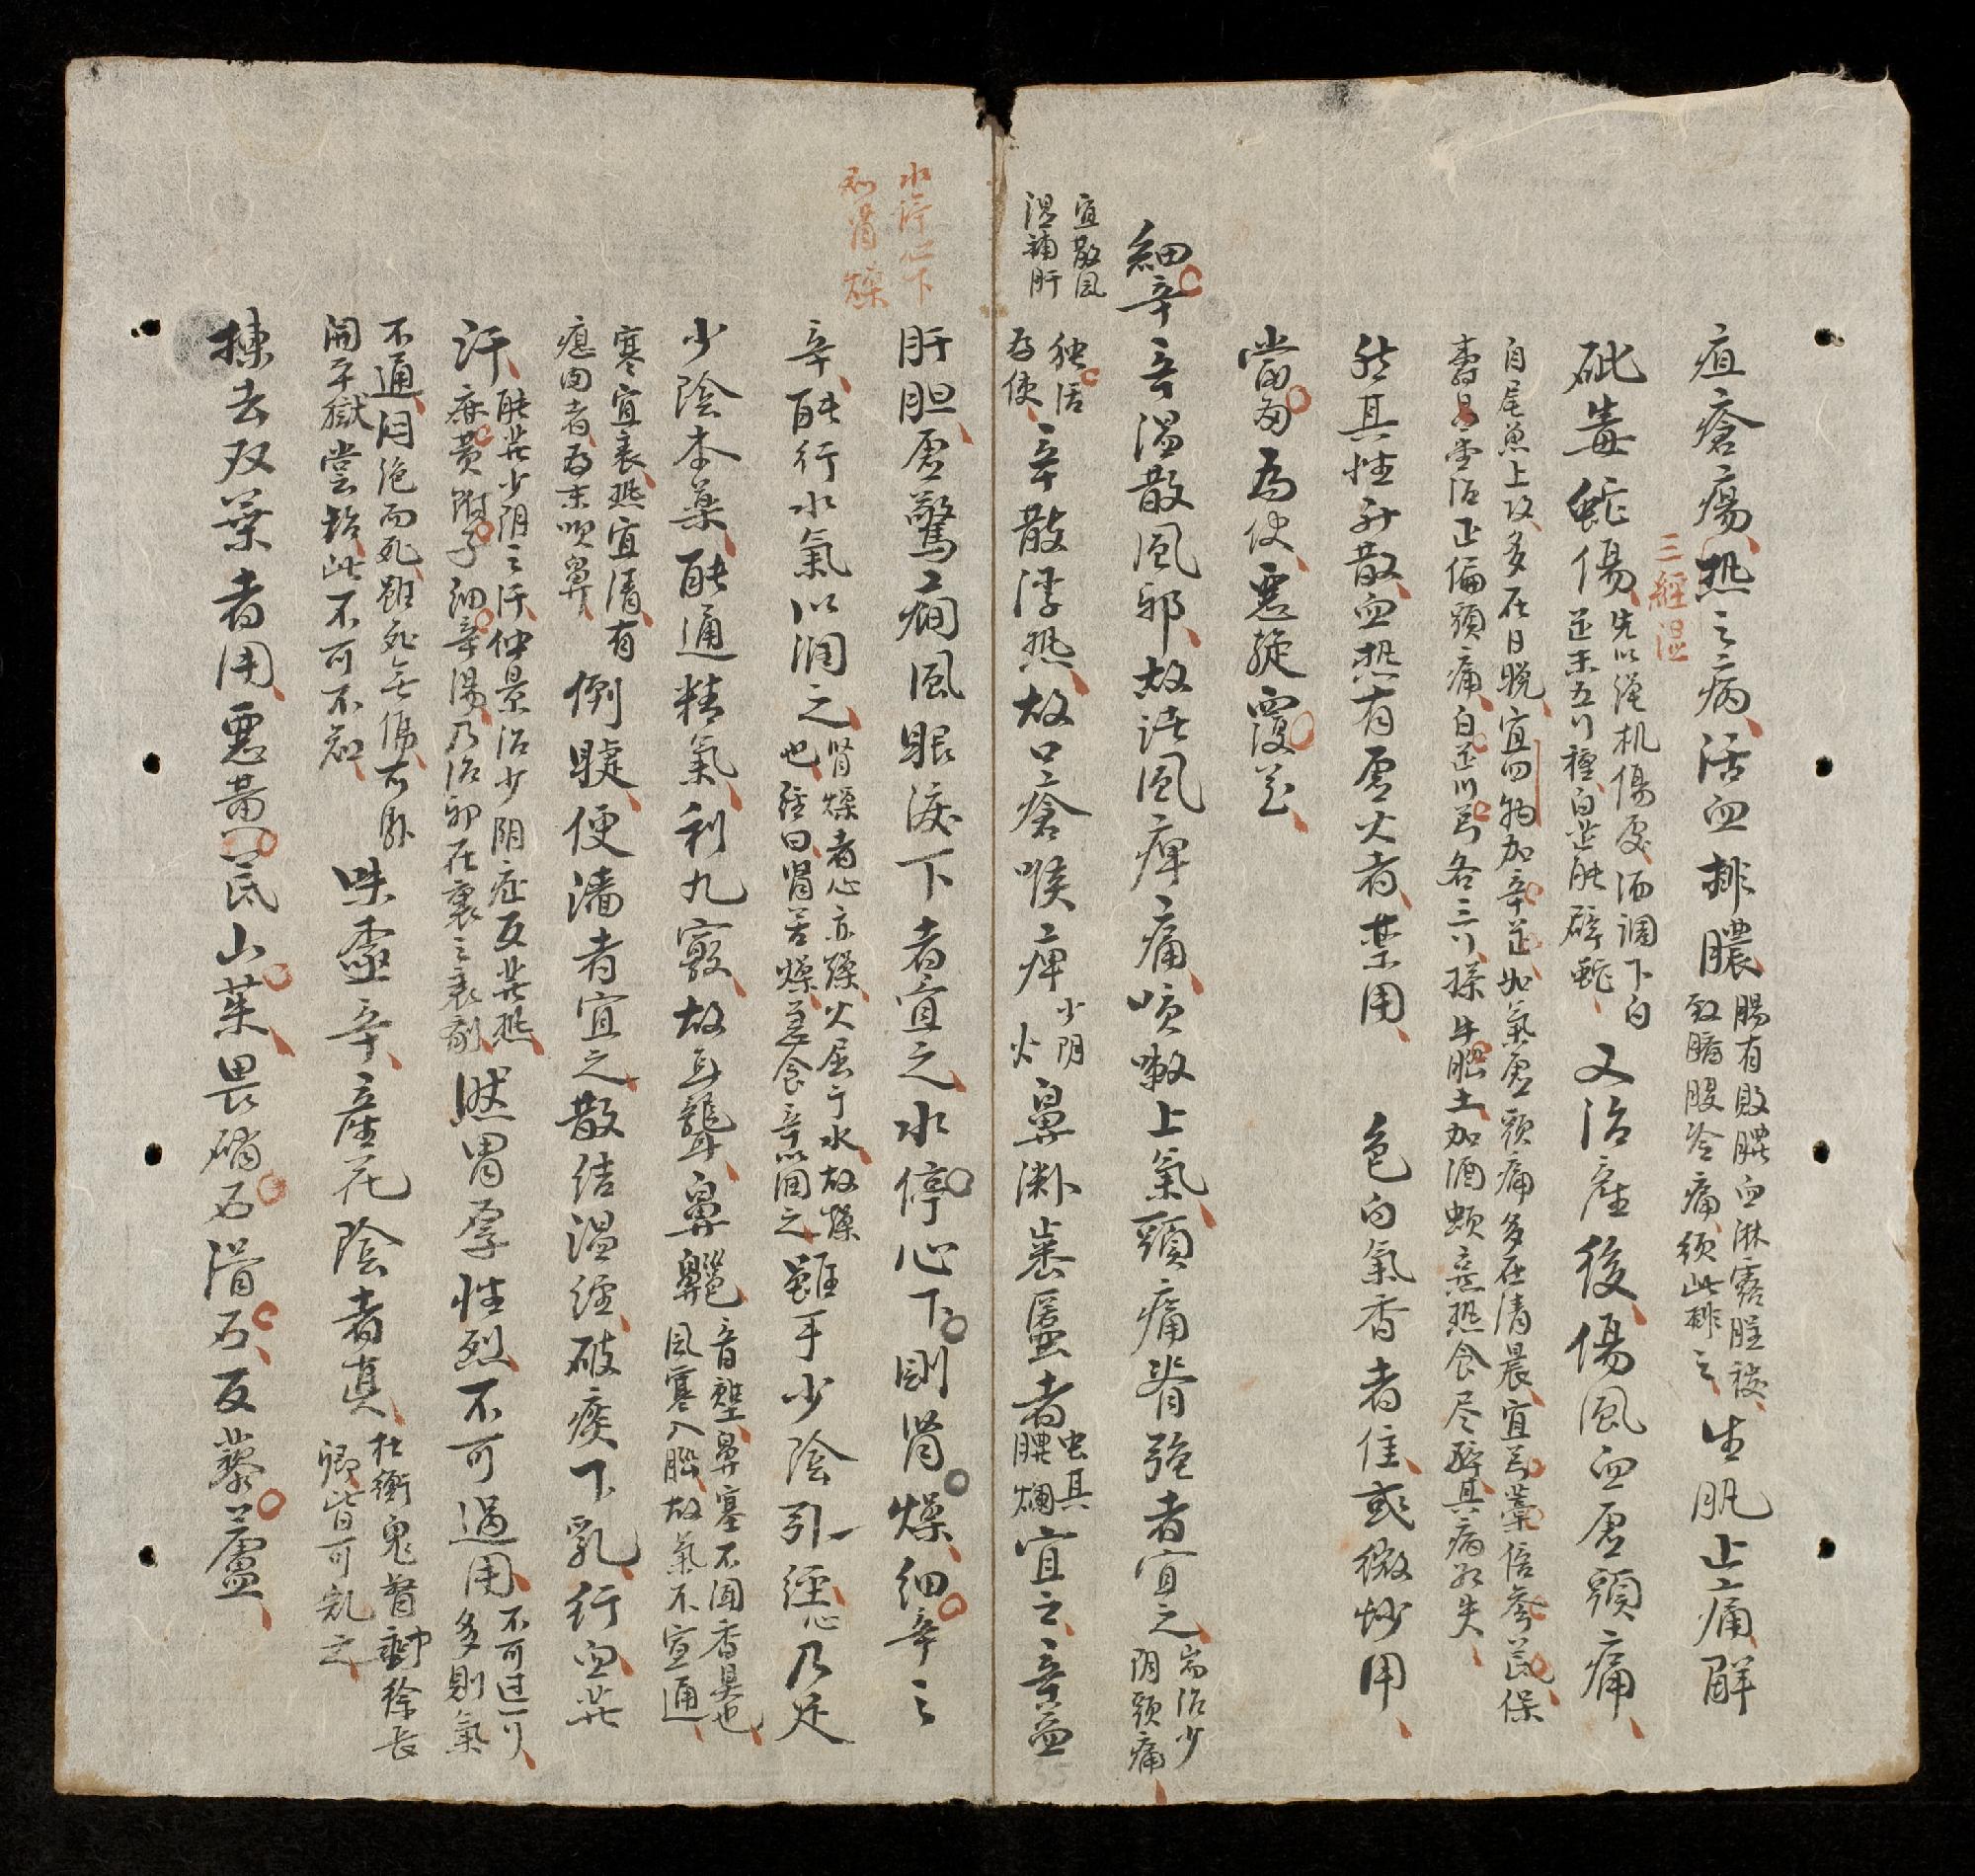 疽瘡瘍、热之病、活血排膿、腸有敗膿血淋露腥穢、致臍腹冷痛、須此排之、生肌止痛、解
三經湿
砒毒蛇傷、先以绳扎傷處、酒調下白芷末五錢、種白芷能辟蛇、又治產後傷風血虚頭痛、
自尾魚上攻、多在日晚、宜四物加辛芷、如氣虚頭痛、多在清晨、宜芎藁倍參芪、保
壽堂治正偏頭痛、白芷川芎各三錢、搽牛腦上、加酒頓熟、热食尽醉、其病如失、
然其性升散、血热有虚火者、禁用、色白氣香者佳、或微炒用、
當歸為使、惡旋覆花、
細辛、辛温散風邪、故诸風痺痛、咳嗽上氣、頭痛脊強者宜之、耑治少阴頭痛、
宜散風湿補肝
独活為使、辛散浮热、故口瘡喉痺、少阴火、鼻渊、齒䘌者、虫其膿爛、宜之、辛益
肝胆、虚驚癇、風眼淚下者宜之、水停心下、則腎燥、細辛之
水停心下則腎燥
辛、能行水氣以润之、肾燥者、心亦燥、火屈于水、故燥也、經曰、腎苦燥、急食辛以润之、雖手少陰引經、心、乃足
少陰本藥、能通精氣、利九竅、故耳聾、鼻齆、音壅、鼻塞不闻香臭也、風寒入腦、故氣不宣通、
寒宜表、热宜清、有瘜肉者、為末吹鼻、倒睫便濇者宜之、散结温經、破痰下乳、行血發
汗、能發少阴之汗、仲景治少阴症反發热、麻黄附子細辛湯、乃治邪在裏之表剤、然胃厚性烈、不可過用、不可过一錢、多則氣
不通、闷绝而死、雖死無傷可驗、開平獄嘗治此、不可不知、味極辛、產花陰者真、杜衡鬼督郵徐長卿皆可亂之、
揀去双葉者用、惡黃芪山茱、畏硝石滑石、反藜蘆、